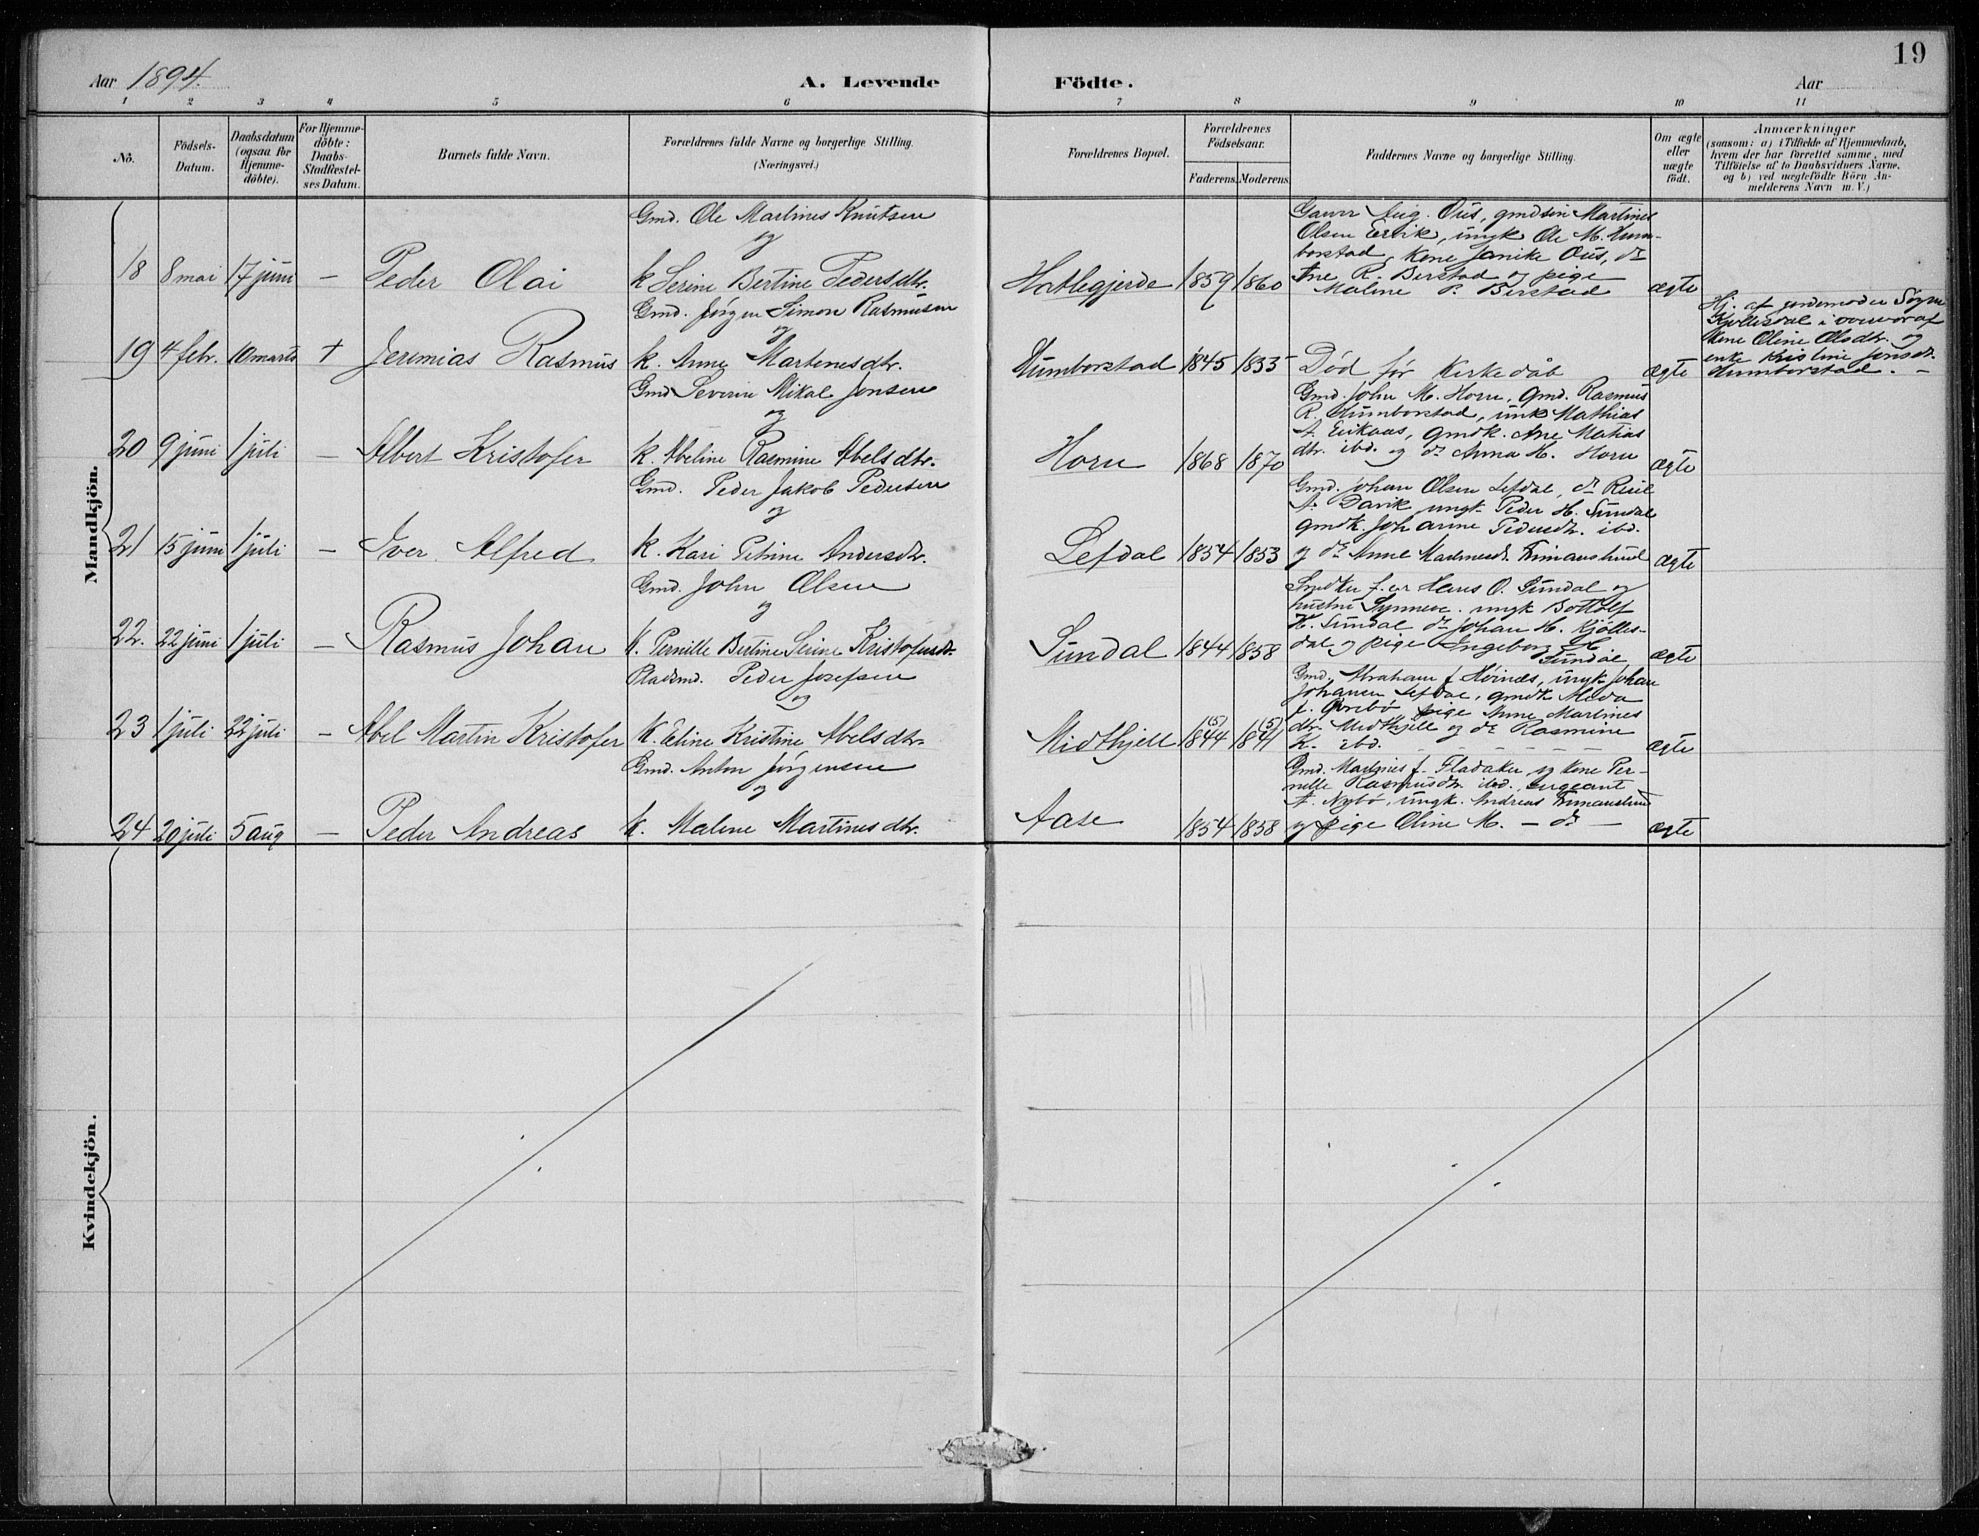 19
Aar 1894.
A. Levende Födte.
Aar
1 2 3 4 5 6 7 8 9 10 11
No.
Födsels-Datum.
Daabsdatum (ogsaa for Hjemme-döbte).
For Hjemme-döbte: Daabs-Stadfæstel-ses Datum.
Barnets fulde Navn.
Forældrenes fulde Navne og borgerlige Stilling. (Næringsvei.)
Forældrenes Bopæl.
Forældrenes Födselsaar.
Faderens. Moderens.
Faddernes Navne og borgerlige Stilling.
Om ægte eller uægte födt.
Anmærkninger
(saasom: a) i Tilfælde af Hjemmedaab, hvem der har forrettet samme, med Tilföielse af to Daabsvidners Navne, og b) ved uægtefödte Börn An-melderens Navn m. V.)
Mandkjön.
18 8 mai 17 juni —
Peder Olai
Gmd. Ole Martines Knutsen
og
k Serine Bertine Pedersdtr.
Hatlegjerde 1859 1860
Aug. Ous, gmdsøn Martines
Olsen Ervik, ungk Ole M. Hum-
borstad, Kone Janike Ous, do
Ane R. Berstad og pige
Malene P. Berstad
ægte
19 4 febr. 10 marts +
Jeremias Rasmus
Gmd. Jørgen Simon Rasmusen
og
k. Anne Martenesdtr.
Humborstad 1845 1855
Død før Kirkedåb
ægte
Hj. af jordemoder
Kjøllesdal i overvær af
Kone Oline Olsdtr. og
enke Kristine Jonsdtr.
Humborstad. —
20 9 juni 1 juli —
Albert Kristofer
Gmd Severin Mikal Jonsen
og
k. Abeline Rasmine Abelsdtr.
Horn 1868 1870
Gmd. John M. Horn, Gmd. Rasmus
R. Humborstad, unk Mathias
A. Eikaas, gmdk. Ane Matias
dtr. ibd. og do Anna H. Horn
ægte
21 15 juni 1 juli —
Iver Alfred
Gmd. Peder Jakob Pedersen
og
k. Kari Petrine Andersdtr.
Lefdal 1854 1853
Gmd. Johan Olsen Lefdal, do
A. Davik ungk Peder H. Sundal
gmdk. Johanne Pedersdtr. ibd.
og do Anne
ægte
22. 22 juni 1 juli —
Rasmus Johan
Gmd. John Olsen
og
k. Pernille Bertine Serine Kristofersdtr.
Sundal 1844 1858
Hans O. Sundal og
hustru Synneve. ungk Bottolf
H. Sundal do Johan H. Kjølles-
dal og pige Ingeborg H
Sundal
ægte
23 1 juli 22 juli —
Abel Martin Kristofer
Pladsmd. Peder Josefsen
og
k. Eline Kristine Abelsdtr.
Midthjell 1844 (5) 1841 (5)
Gmd. Abraham J. Hvinnes, ungk. Johan
Johansen Lefdal, gmdk.
pige Anne Martines
dtr. Midthjell og do Rasmine
K. ibd. — — — — —
ægte
24 20 juli 5 aug —
Peder Andreas
Gmd. Anton Jørgensen
og
k. Malene Martinesdtr.
Aase 1854 1858
Gmd. Martines J. Fladaker, og kone Per-
nille Rasmusdtr. ibd., sergeant
A. Nybø, ungk. Andreas
og pige Oline M. — do —
ægte
Kvindekjön.